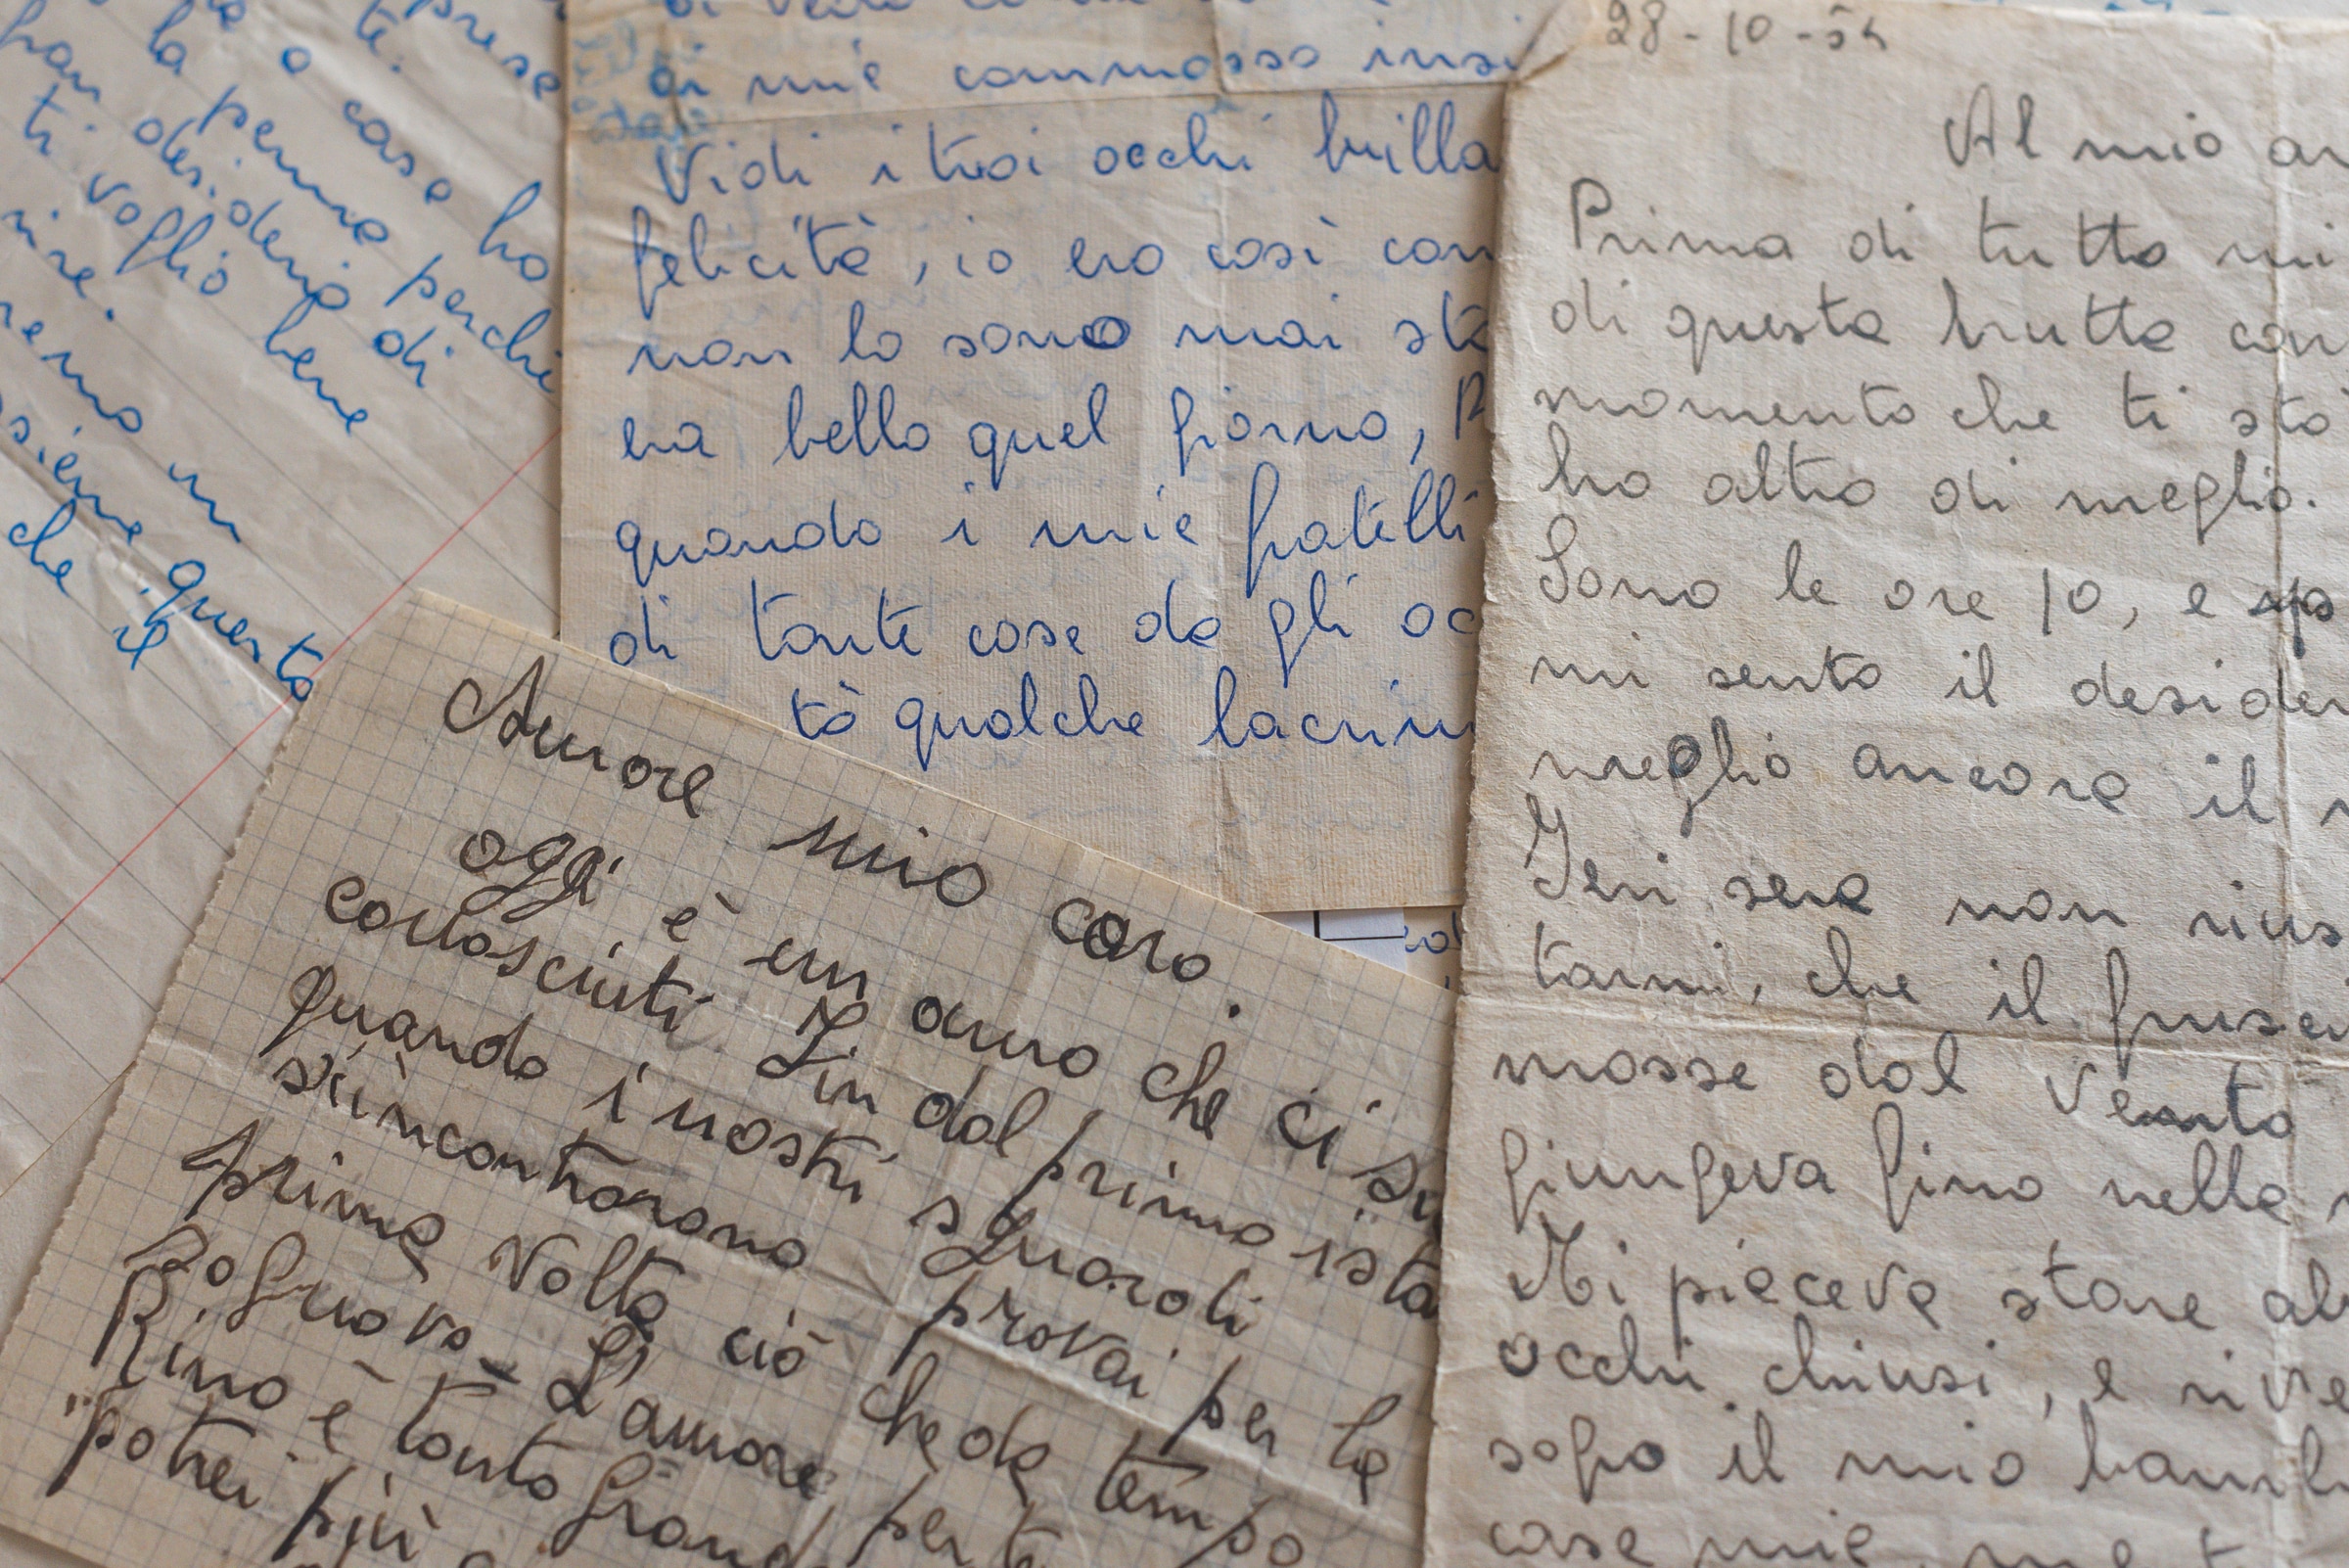 prese
te.
o casa ho
la penna perche
gran desiderio di
ti voglio bene
in
questo
che il
di mie commosso insi
Vidi i tuoi occhi brilla
felicità, io ero così con
non lo sono mai sta
era bello quel giorno, R
quando i mie fratelli
di tante cose da gli oc
tò qualche lacrim
28-10-54
Al mio am
Prima di tutto mi
di questa brutta car
momento che ti sto
ho altro di meglio.
Sono le ore 10, e
mi sento il desider
meglio ancora il
Ieri sera non rius
tarmi, che il frusc
mosse dal vento
giungeva fino nella
Mi piaceva stare al
occhi chiusi, e rive
sopo il mio bamb
case mie, me
Amore mio caro.
oggi è un anno che ci si
conosciuti Fin dal primo ista
quando i nostri sguardi
s'incontrarono provai per la
prima volta ciò che da tempo
sognavo_ L'amore per te
Rino è tanto grand
potrei più